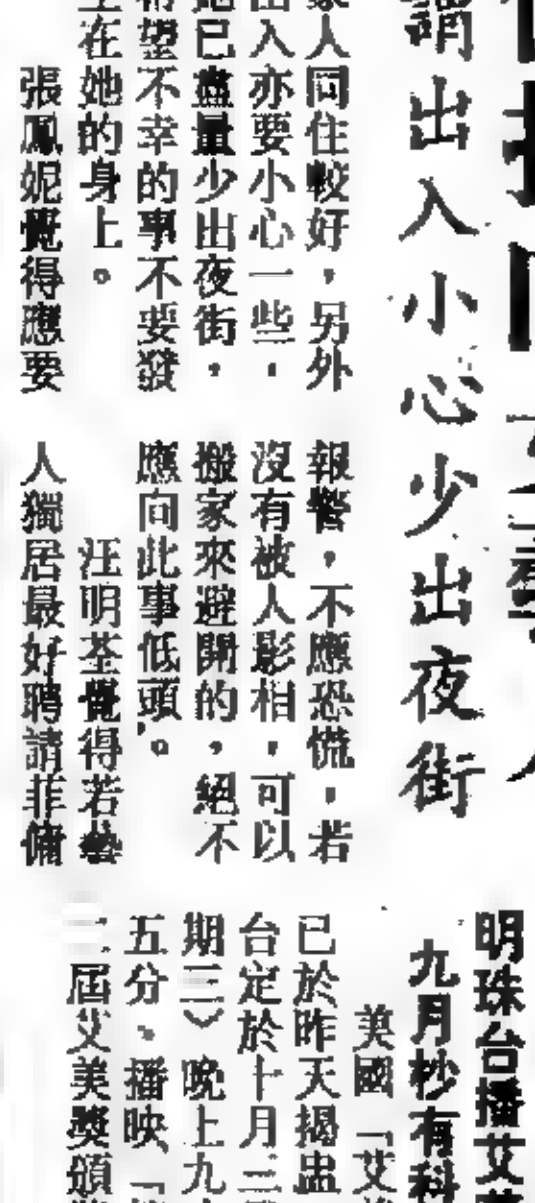 謂出入小心少出夜街
家人同住較好，另外
出入亦要小心一些，
她已盡量少出夜街，
希望不幸的事不要發
生在她的身上。
張鳳妮覺得應要
報警，不應恐慌，若
沒有被人影相，可以
搬家來避開的，絕不
應向此事低頭。
汪明荃覺得若藝
人獨居最好聘請菲傭
明珠台播艾
九月杪有科
美國「艾
已於昨天揭
台定於十月三
期三）晚上九
五分，播映「
二屆艾美獎頒